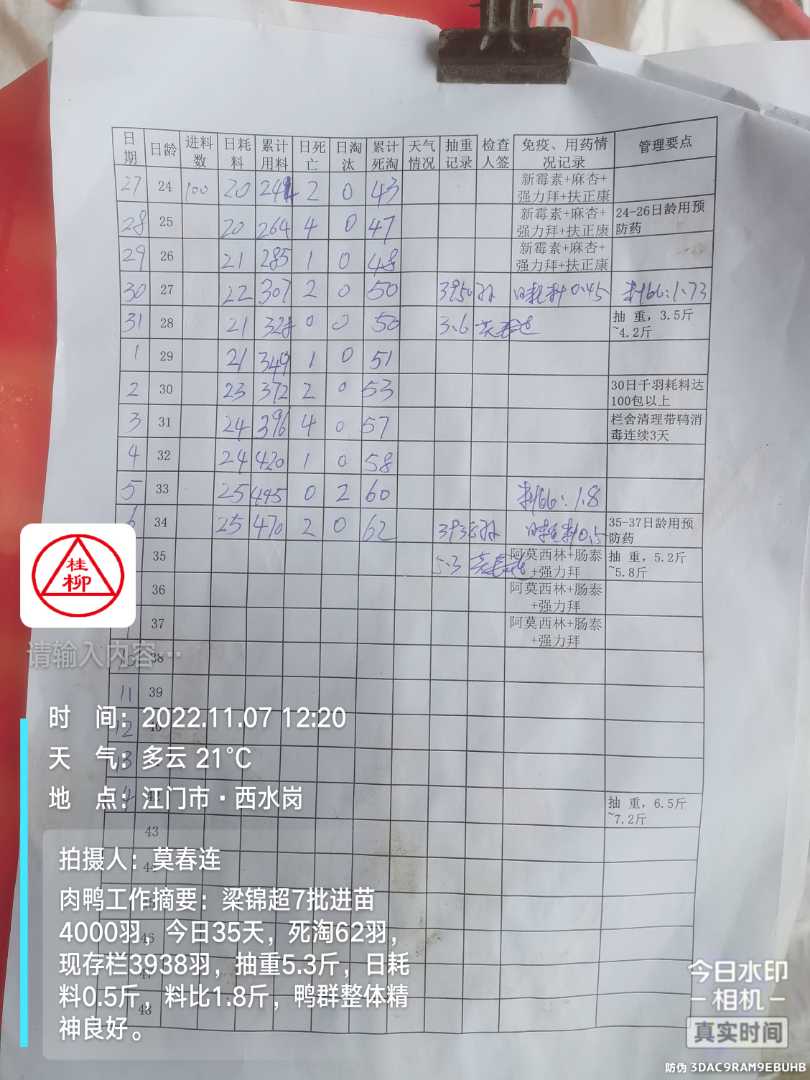 日期 日龄 进料数 日耗料 累计用料 日死亡 日淘汰 累计死淘 天气情况 抽重记录 检查人签 免疫、用药情况记录 管理要点
27 24 100 20 244 2 0 43 新霉素+麻杏+强力拜+扶正康
28 25 20 264 4 0 47 新霉素+麻杏+强力拜+扶正康 24-26日龄用预防药
29 26 21 285 1 0 48 新霉素+麻杏+强力拜+扶正康
30 27 22 307 2 0 50 3950羽 日耗料0.45 料比:1.73
31 28 21 328 0 0 50 3.6 莫春连 抽 重，3.5斤~4.2斤
1 29 21 349 1 0 51
2 30 23 372 2 0 53 30日千羽耗料达100包以上
3 31 24 396 4 0 57 栏舍清理带鸭消毒连续3天
4 32 24 420 1 0 58
5 33 25 445 0 2 60 料比:1.8
6 34 25 470 2 0 62 3938羽 日耗料0.5 35-37日龄用预防药
35 5.3 莫春连 阿莫西林+肠泰+强力拜 抽 重，5.2斤~5.8斤
36 阿莫西林+肠泰+强力拜
37 阿莫西林+肠泰+强力拜
38
11 39
12
43
抽 重，6.5斤~7.2斤
46
47
48
桂柳
请输入内容…
时 间：2022.11.07 12:20
天 气：多云 21℃
地 点：江门市·西水岗
拍摄人：莫春连
肉鸭工作摘要：梁锦超7批进苗
4000羽，今日35天，死淘62羽，
现存栏3938羽，抽重5.3斤，日耗
料0.5斤，料比1.8斤，鸭群整体精
神良好。
今日水印
相机
真实时间
防伪 3DAC9RAM9EBUHB